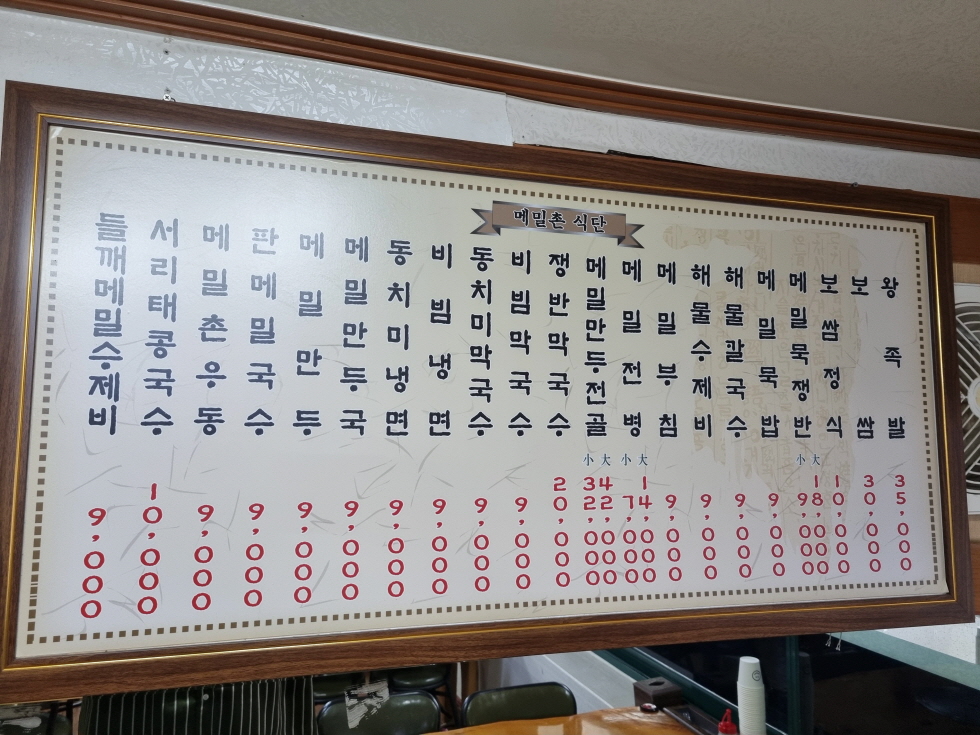 메밀촌 식단
들깨메밀수제비 9,000
서리태콩국수 10,000
메밀촌우동 9,000
판메밀국수 9,000
메밀만두 9,000
메밀만두국 9,000
동치미냉면 9,000
비빔냉면 9,000
동치미막국수 9,000
비빔막국수 9,000
쟁반막국수 20,000
메밀만두전골 小 32,000 大 42,000
메밀전병 小 7,000 大 14,000
메밀부침 9,000
해물수제비 9,000
해물칼국수 9,000
메밀묵밥 9,000
메밀묵쟁반 小 9,000 大 18,000
보쌈정식 10,000
보쌈 30,000
왕족발 35,000